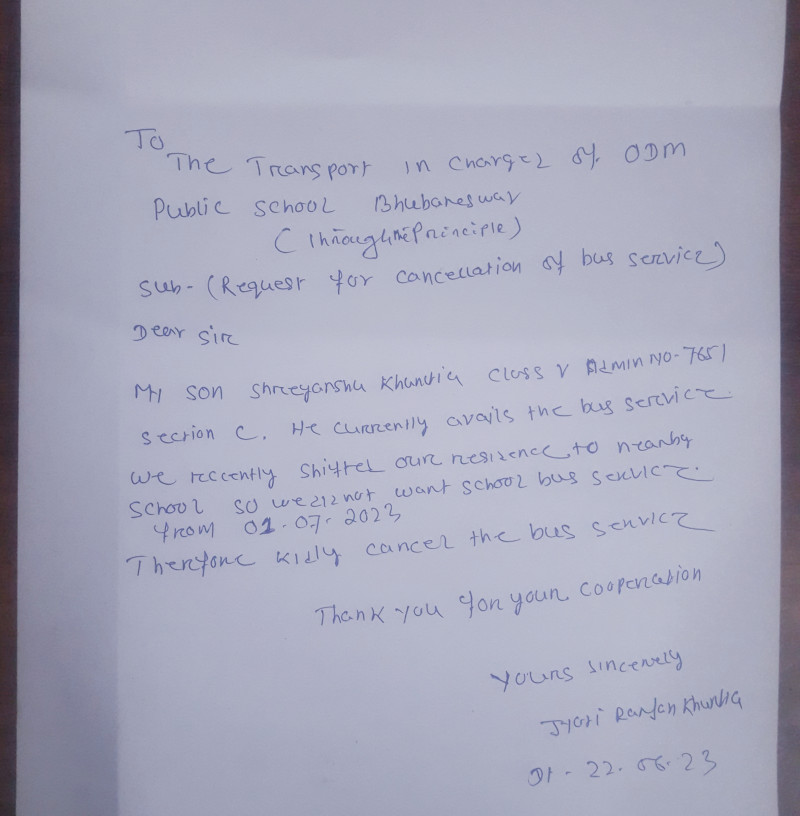 To
The Transport in charge of ODM
Public School Bhubaneswar
(Through the Principle)
Sub- (Request for cancellation of bus service)
Dear Sir
My son Shreeyanshu Khuntia Class V Admin No- 7651
Section C. He currently avails the bus service.
We reccently shifted our residence, to nearby
School so we did not want school bus service.
from 01.07.2023
Therefore kidly cancel the bus service
Thank you for your cooperation
Yours sincerely
Jyoti Ranjan Khuntia
Dt - 22.06.23